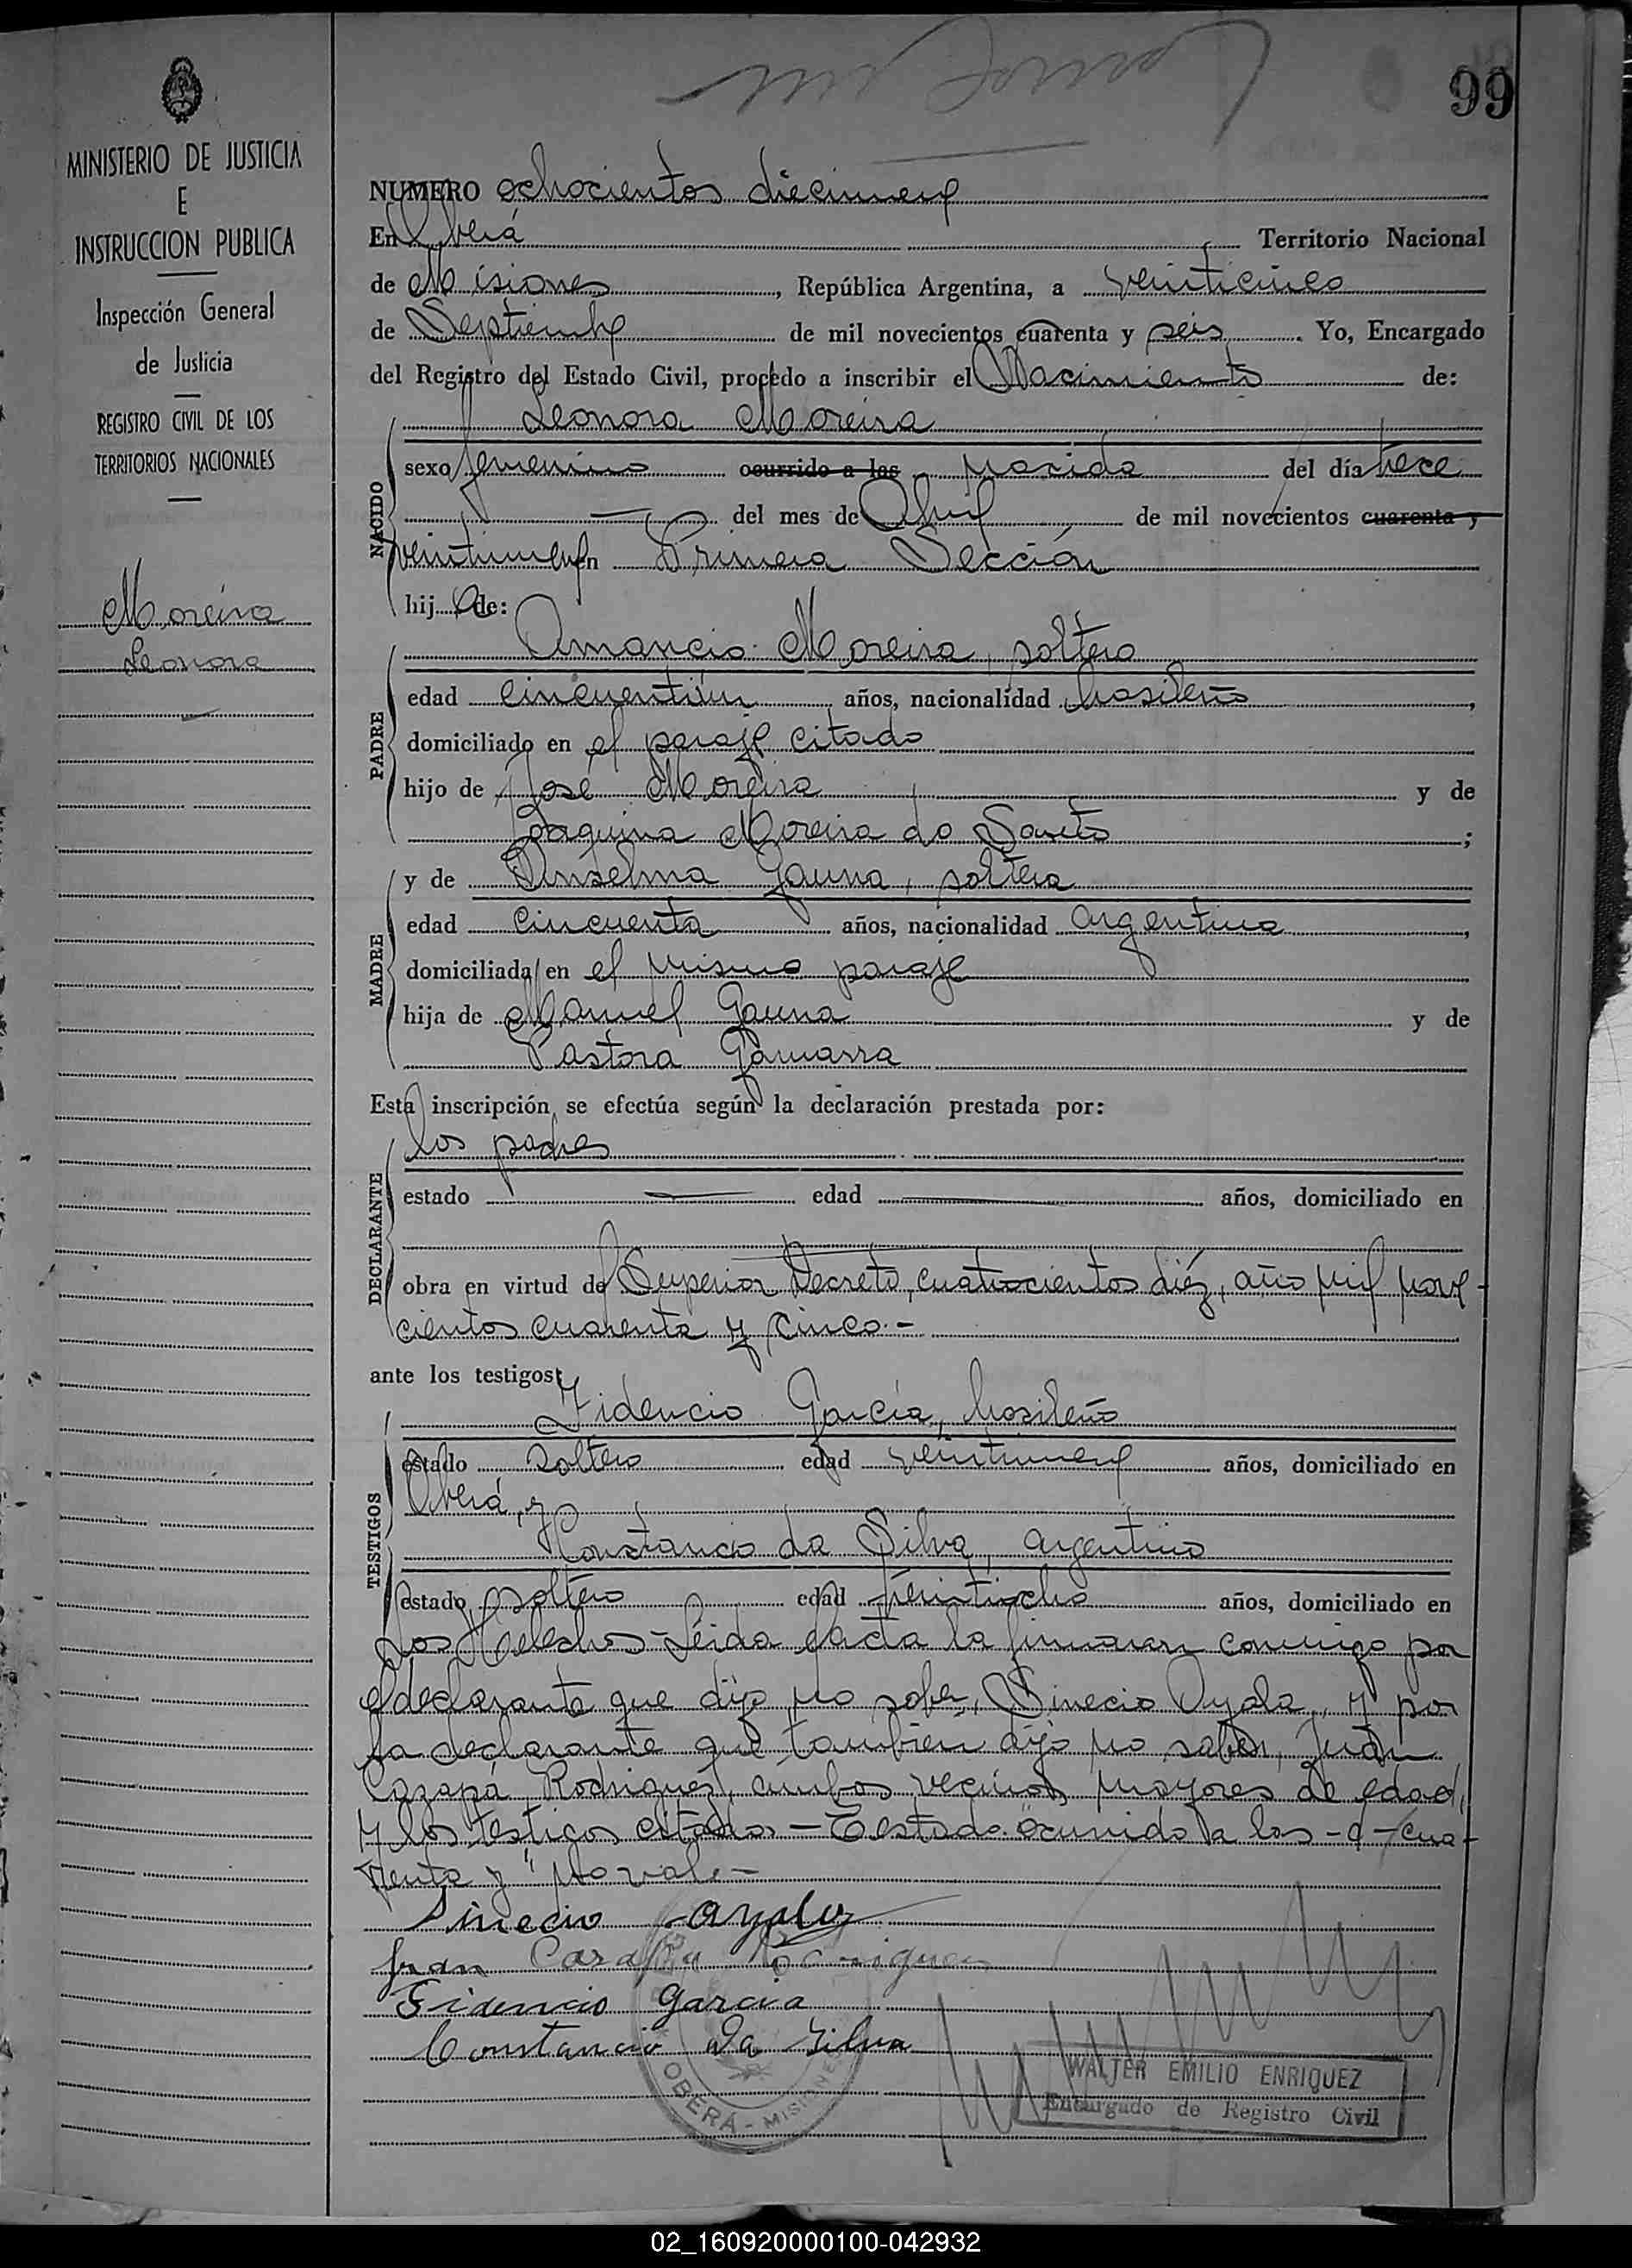 99
MINISTERIO DE JUSTICIA
E
INSTRUCCION PUBLICA
Inspección General
de Justicia
REGISTRO CIVIL DE LOS
TERRITORIOS NACIONALES
Moreira
Leonora
NUMERO ochocientos diecinueve
En Oberá Territorio Nacional
de Misiones, República Argentina, a veinticinco
de Septiembre de mil novecientos cuarenta y seis. Yo, Encargado
del Registro del Estado Civil, procedo a inscribir el Nacimiento de:
NACIDO
Leonora Moreira
sexo femenino ocurrido a las nacida del día trece
del mes de Abril de mil novecientos cuarenta y
veintinueve en Primera Sección
hija de:
PADRE
Amancio Moreira, soltero
edad cincuentiún años, nacionalidad brasileño,
domiciliado en el paraje citado
hijo de José Moreira y de
Joaquina Moreira do Santo;
MADRE
y de Anselma Gauna, soltera
edad cincuenta años, nacionalidad argentina,
domiciliada en el mismo paraje
hija de Manuel Gauna y de
Pastora Gamarra
Esta inscripción se efectúa según la declaración prestada por:
DECLARANTE
los padres
estado edad años, domiciliado en
obra en virtud de Superior Decreto, cuatrocientos diéz, año mil nove-
cientos cuarenta y cinco.-
ante los testigos:
TESTIGOS
Fidencio García, brasileño
estado soltero edad veintinueve años, domiciliado en
Oberá, y
Constancio da Silva, argentino
estado soltero edad veintiocho años, domiciliado en
Los Helechos - Leida el acta la firmaran conmigo por
el declarante que dijo no saber, Sinecio Ayala, y por
la declarante que también dijo no saber, Juan
Cazapá Rodriguez, ambos vecinos mayores de edad,
y los testigos citados - Testado: ocurrido a las - a - cua-
renta y" no vale -
Sinecio Ayala
Juan Rodriguez
Fidencio Garcia
Constancio da Silva
OBERÁ - MISIONES
WALTER EMILIO ENRIQUEZ
Encargado de Registro Civil
02_160920000100-042932